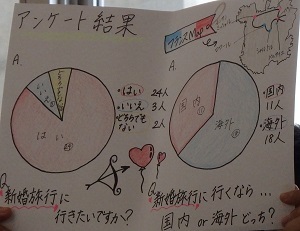 アンケート結果
フランスMap
A.
どちらでもない
いいえ
はい
24
・はい 24人
・いいえ 3人
・どちらでもない 2人
Q.
新婚旅行に
行きたいですか？
A.
国内
11
海外
18
・国内
11人
・海外
18人
Q.
新婚旅行に行くなら…
国内 or 海外どっち？